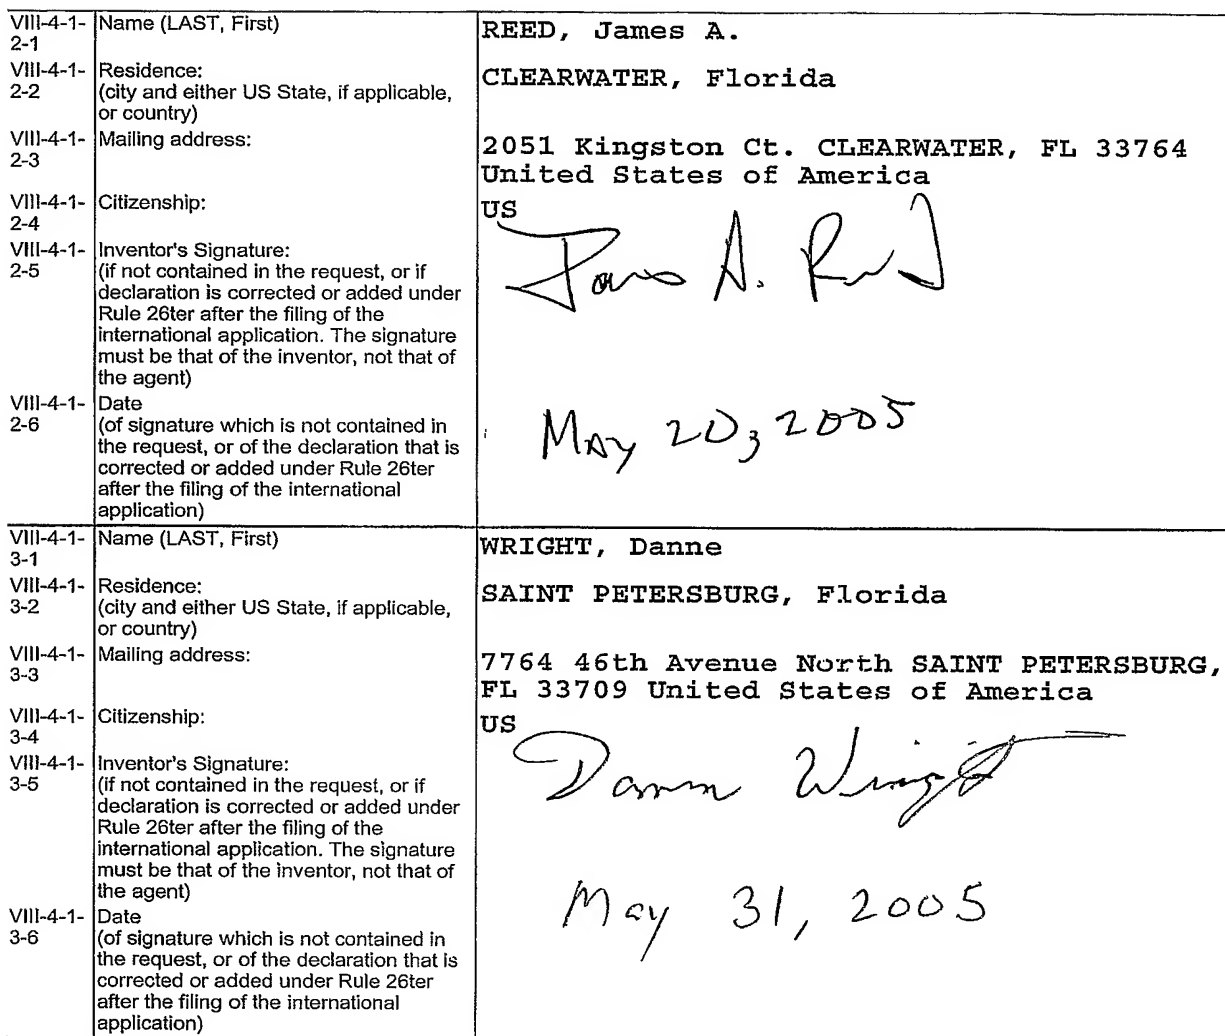 VIII-4-1- Name (LAST, First) REED, James A.
2-1
VIII-4-1- Residence: CLEARWATER, Florida
2-2 (city and either US State, if applicable,
or country)
VIII-4-1- Mailing address: 2051 Kingston Ct. CLEARWATER, FL 33764
2-3 United States of America
VIII-4-1- Citizenship: US
2-4
VIII-4-1- Inventor's Signature: James A. Reed
2-5 (if not contained in the request, or if
declaration is corrected or added under
Rule 26ter after the filing of the
international application. The signature
must be that of the inventor, not that of
the agent)
VIII-4-1- Date May 20, 2005
2-6 (of signature which is not contained in
the request, or of the declaration that is
corrected or added under Rule 26ter
after the filing of the international
application)
VIII-4-1- Name (LAST, First) WRIGHT, Danne
3-1
VIII-4-1- Residence: SAINT PETERSBURG, Florida
3-2 (city and either US State, if applicable,
or country)
VIII-4-1- Mailing address: 7764 46th Avenue North SAINT PETERSBURG,
3-3 FL 33709 United States of America
VIII-4-1- Citizenship: US
3-4
VIII-4-1- Inventor's Signature: Danne Wright
3-5 (if not contained in the request, or if
declaration is corrected or added under
Rule 26ter after the filing of the
international application. The signature
must be that of the inventor, not that of
the agent)
VIII-4-1- Date May 31, 2005
3-6 (of signature which is not contained in
the request, or of the declaration that is
corrected or added under Rule 26ter
after the filing of the international
application)